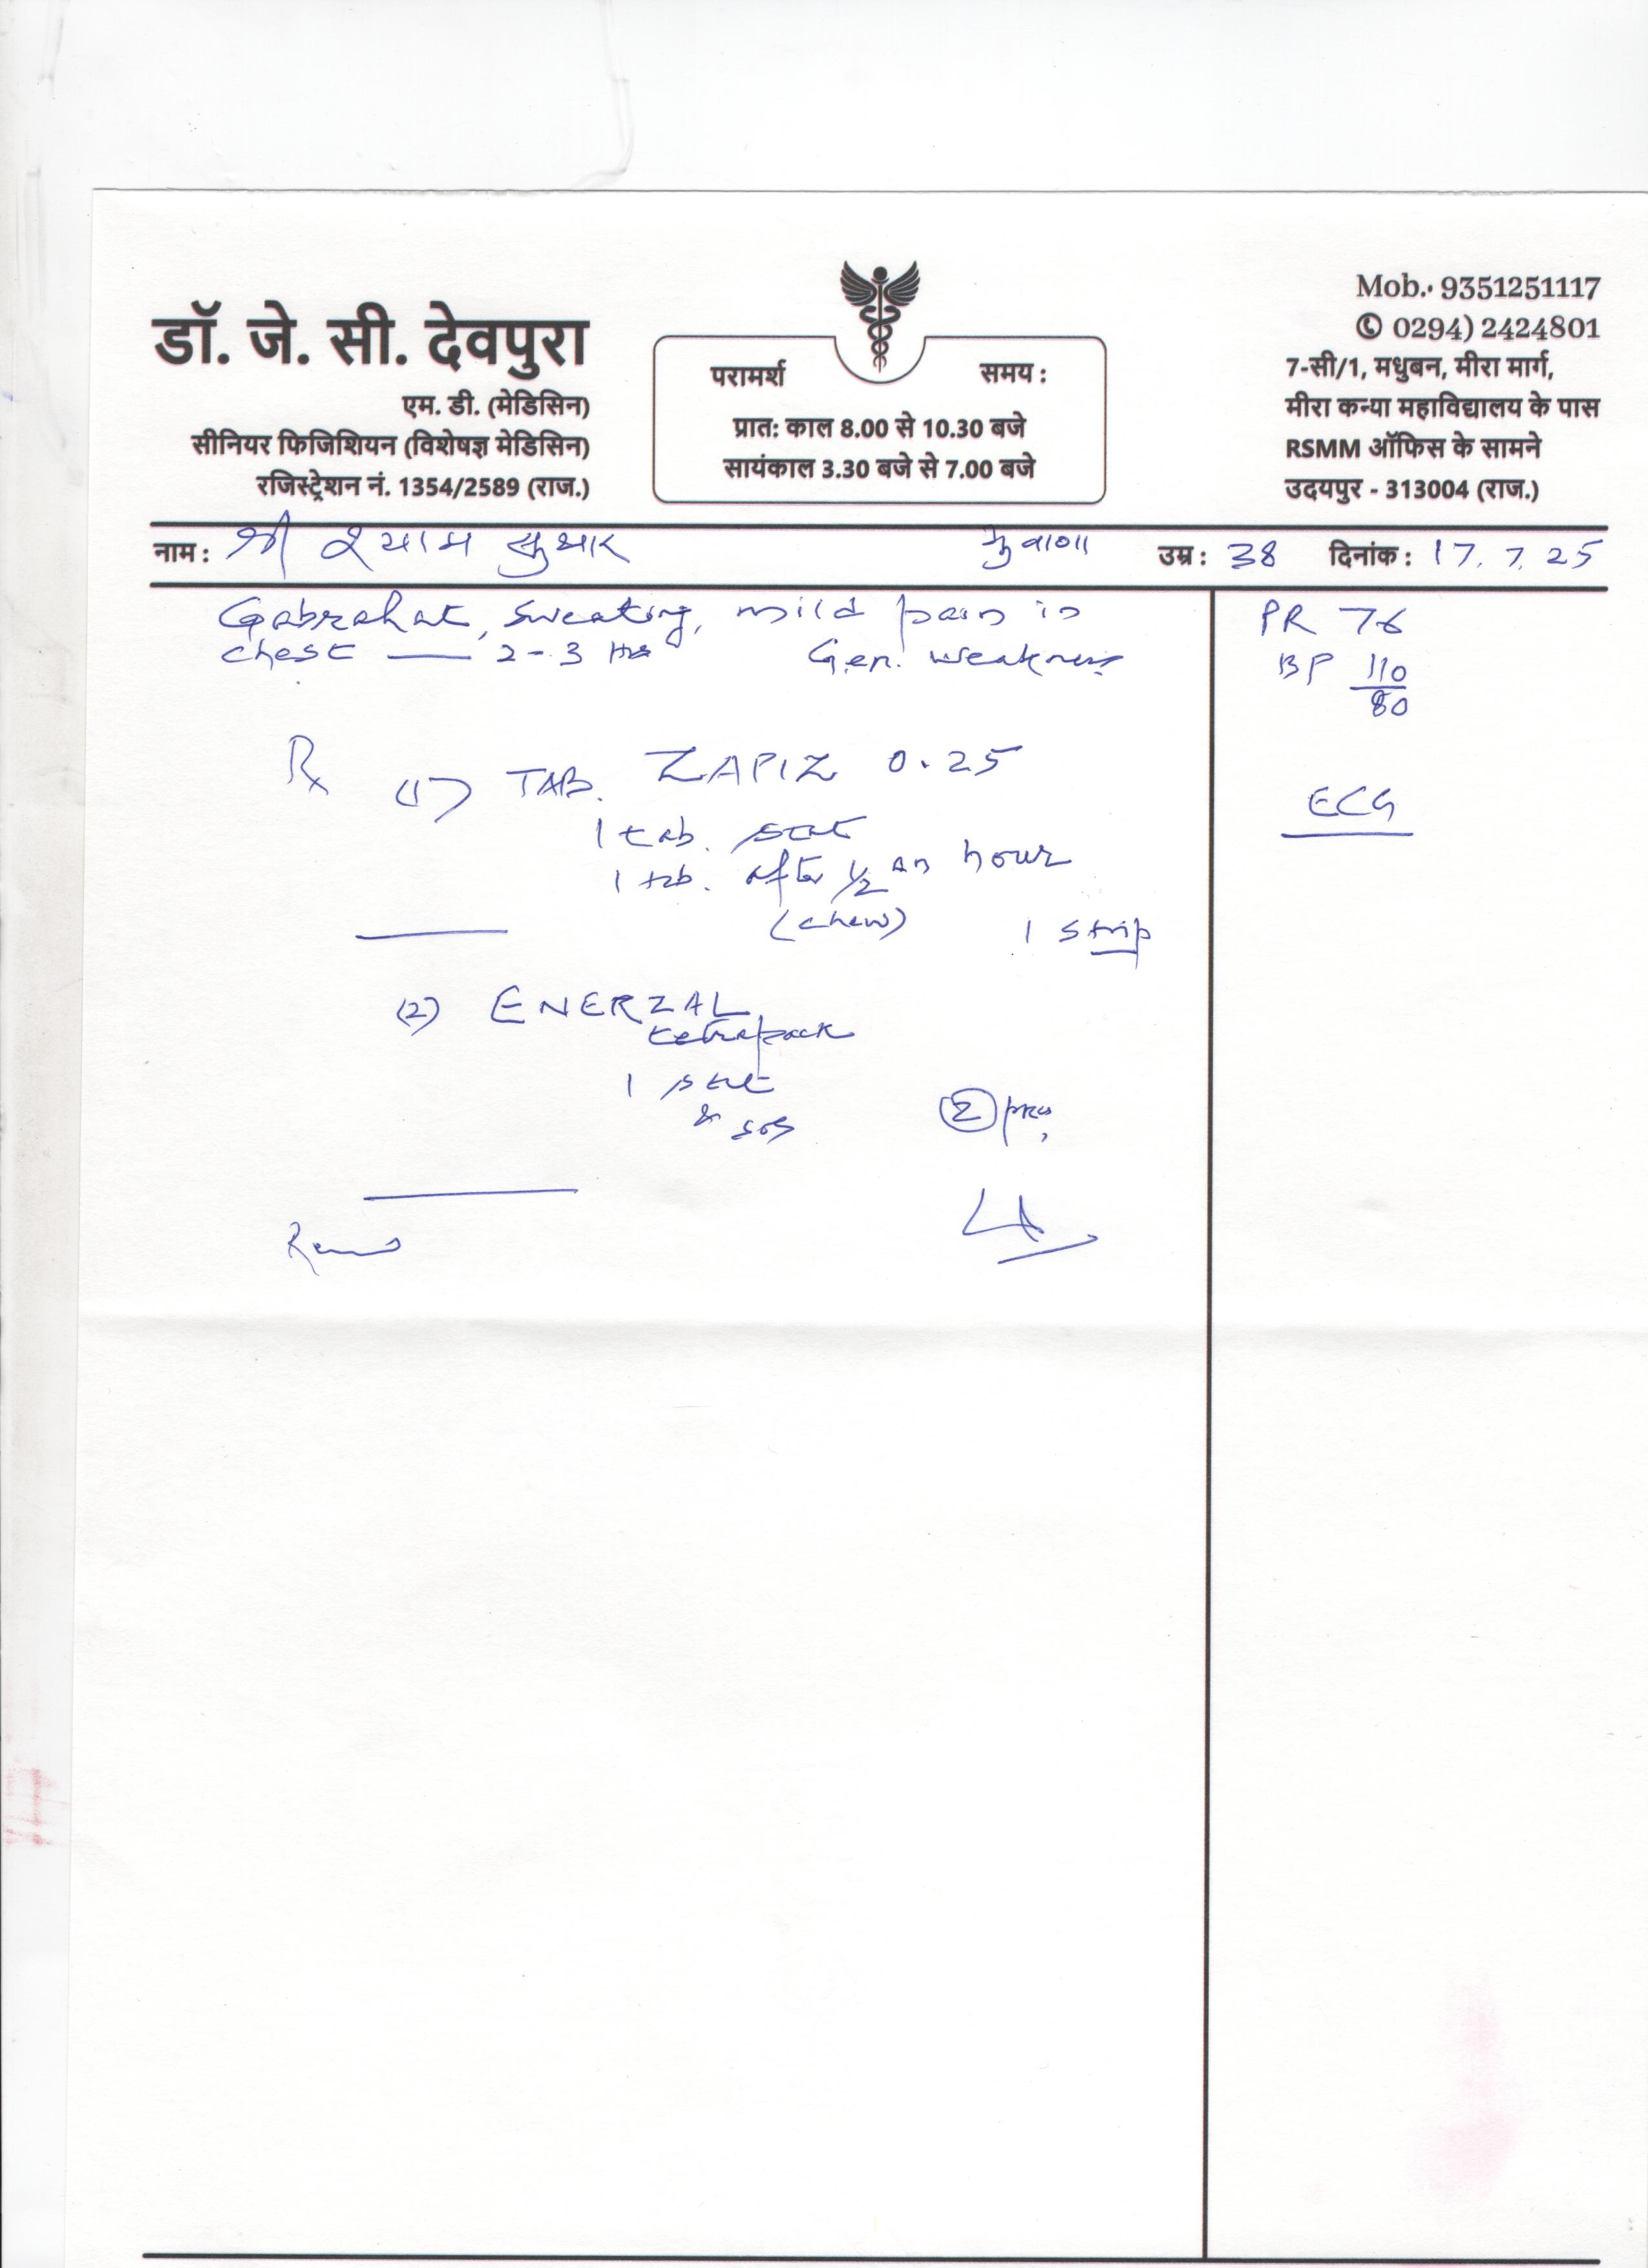 Mob.· 9351251117
0294) 2424801
डॉ. जे. सी. देवपुरा
एम. डी. (मेडिसिन)
सीनियर फिजिशियन (विशेषज्ञ मेडिसिन)
रजिस्ट्रेशन नं. 1354/2589 (राज.)
परामर्श समय :
प्रात: काल 8.00 से 10.30 बजे
सायंकाल 3.30 बजे से 7.00 बजे
7-सी/1, मधुबन, मीरा मार्ग,
मीरा कन्या महाविद्यालय के पास
RSMM ऑफिस के सामने
उदयपुर - 313004 (राज.)
नाम : श्री श्याम सुथार भुवाणा उम्र : 38 दिनांक : 17.7.25
Gabrahat, sweating, mild pain in
chest — 2-3 Hrs Gen. weakness
PR 76
BP 110/80
ECG
Rx (1) TAB. ZAPIZ 0.25
1 tab. stat
1 tab. after 1/2 an hour
(chew) 1 strip
(2) ENERZAL
tetrapack
1 stat
& sos (2) pks